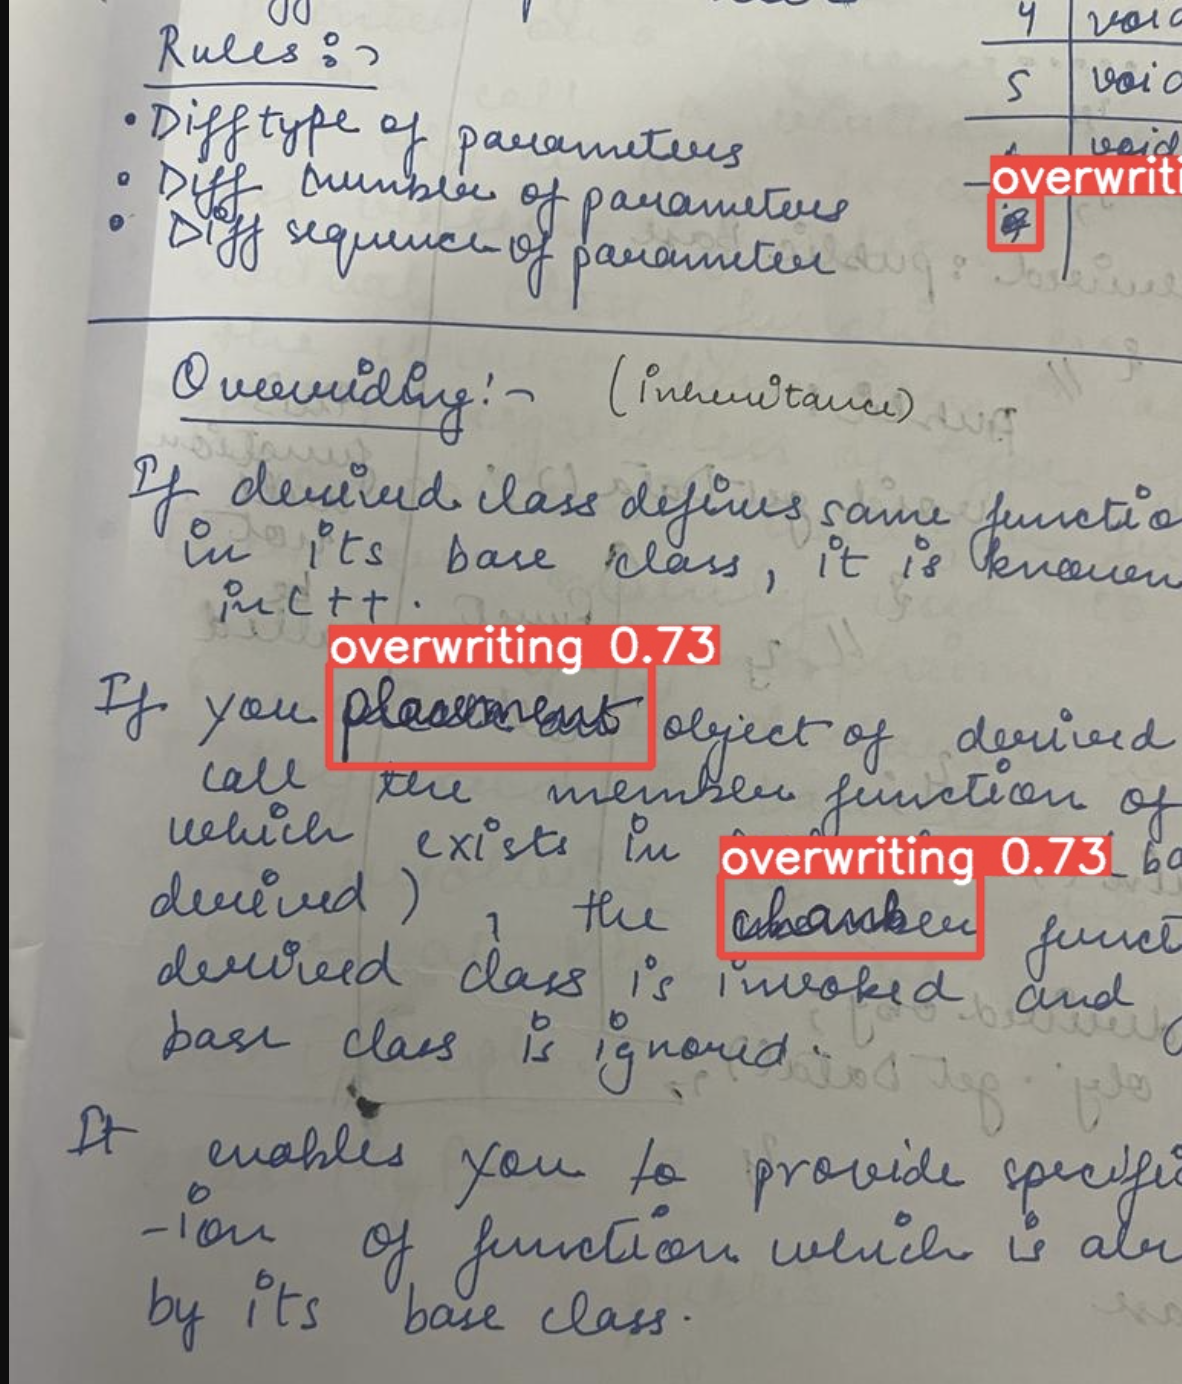 Rules :-
4 | void
5 | void
• Diff type of parameters
void
• Diff number of parameters
overwriti
• Diff sequence of parameter
Overriding :- (inheritance)
If derived class defines same functio
in its base class, it is known
in C++.
overwriting 0.73
If you object of derived
call the member function of
which exists in
overwriting 0.73
ba
derived), the funct
derived class is invoked and
base class is ignored.
It enables you to provide specifi
-ion of function which is alr
by its base class.